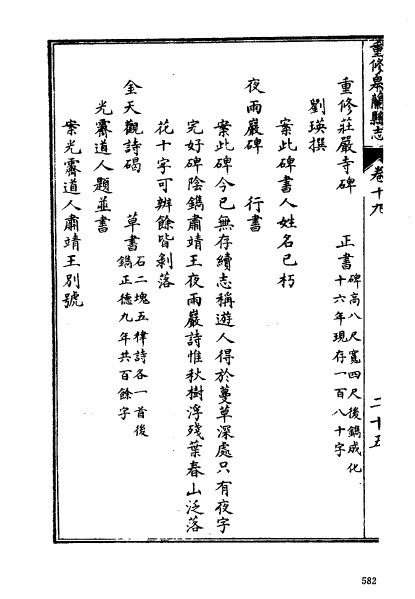 重修皋蘭縣志 卷十九 二十五
重修莊嚴寺碑 正書 碑高八尺寬四尺後鐫成化
十六年現存一百八十字
劉瑛撰
案此碑書人姓名已朽
夜雨巖碑 行書
案此碑今已無存續志稱遊人得於蔓草深處只有夜字
完好碑陰鐫肅靖王夜雨巖詩惟秋樹浮殘葉春山泛落
花十字可辨餘皆剝落
金天觀詩碣 草書 石二塊五律詩各一首後
鐫正德九年共百餘字
光霽道人題並書
案光霽道人肅靖王別號
582